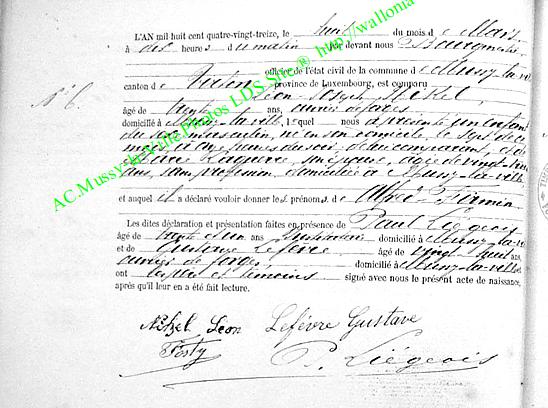 L'AN mil huit cent quatre-vingt-treize, le huit du mois de Mars
à dix heures du matin par devant nous Bourgmestre
officier de l'état civil de la commune de Mussy-la-ville
canton de Virton province de Luxembourg, est comparu
Léon Joseph Nickel,
âgé de trente ans, ouvrier de forges
domicilié à Mussy-la-ville, lequel nous a présenté un enfant
du sexe masculin, né en son domicile, le sept de ce
mois, à onze heures du soir, de lui comparant, et de
Marie son épouse, âgée de vingt
ans, sans profession domiciliée à Mussy-la-ville
et auquel il a déclaré vouloir donner les prénoms de Alfred Firmin
Les dites déclaration et présentation faites en présence de Paul Liégeois
âgé de trente et un ans Instituteur domicilié à Mussy-la-v
et de Gustave Lefèvre âgé de vingt huit ans
ouvrier de forges domicilié à Mussy-la-ville
ont les père et témoins signé avec nous le présent acte de naissance,
après qu'il leur en a été fait lecture.
Nickel Léon Lefèvre Gustave
P. Liégeois
AC.Mussy-la-Ville.Photos LDS Site® http://wallonia